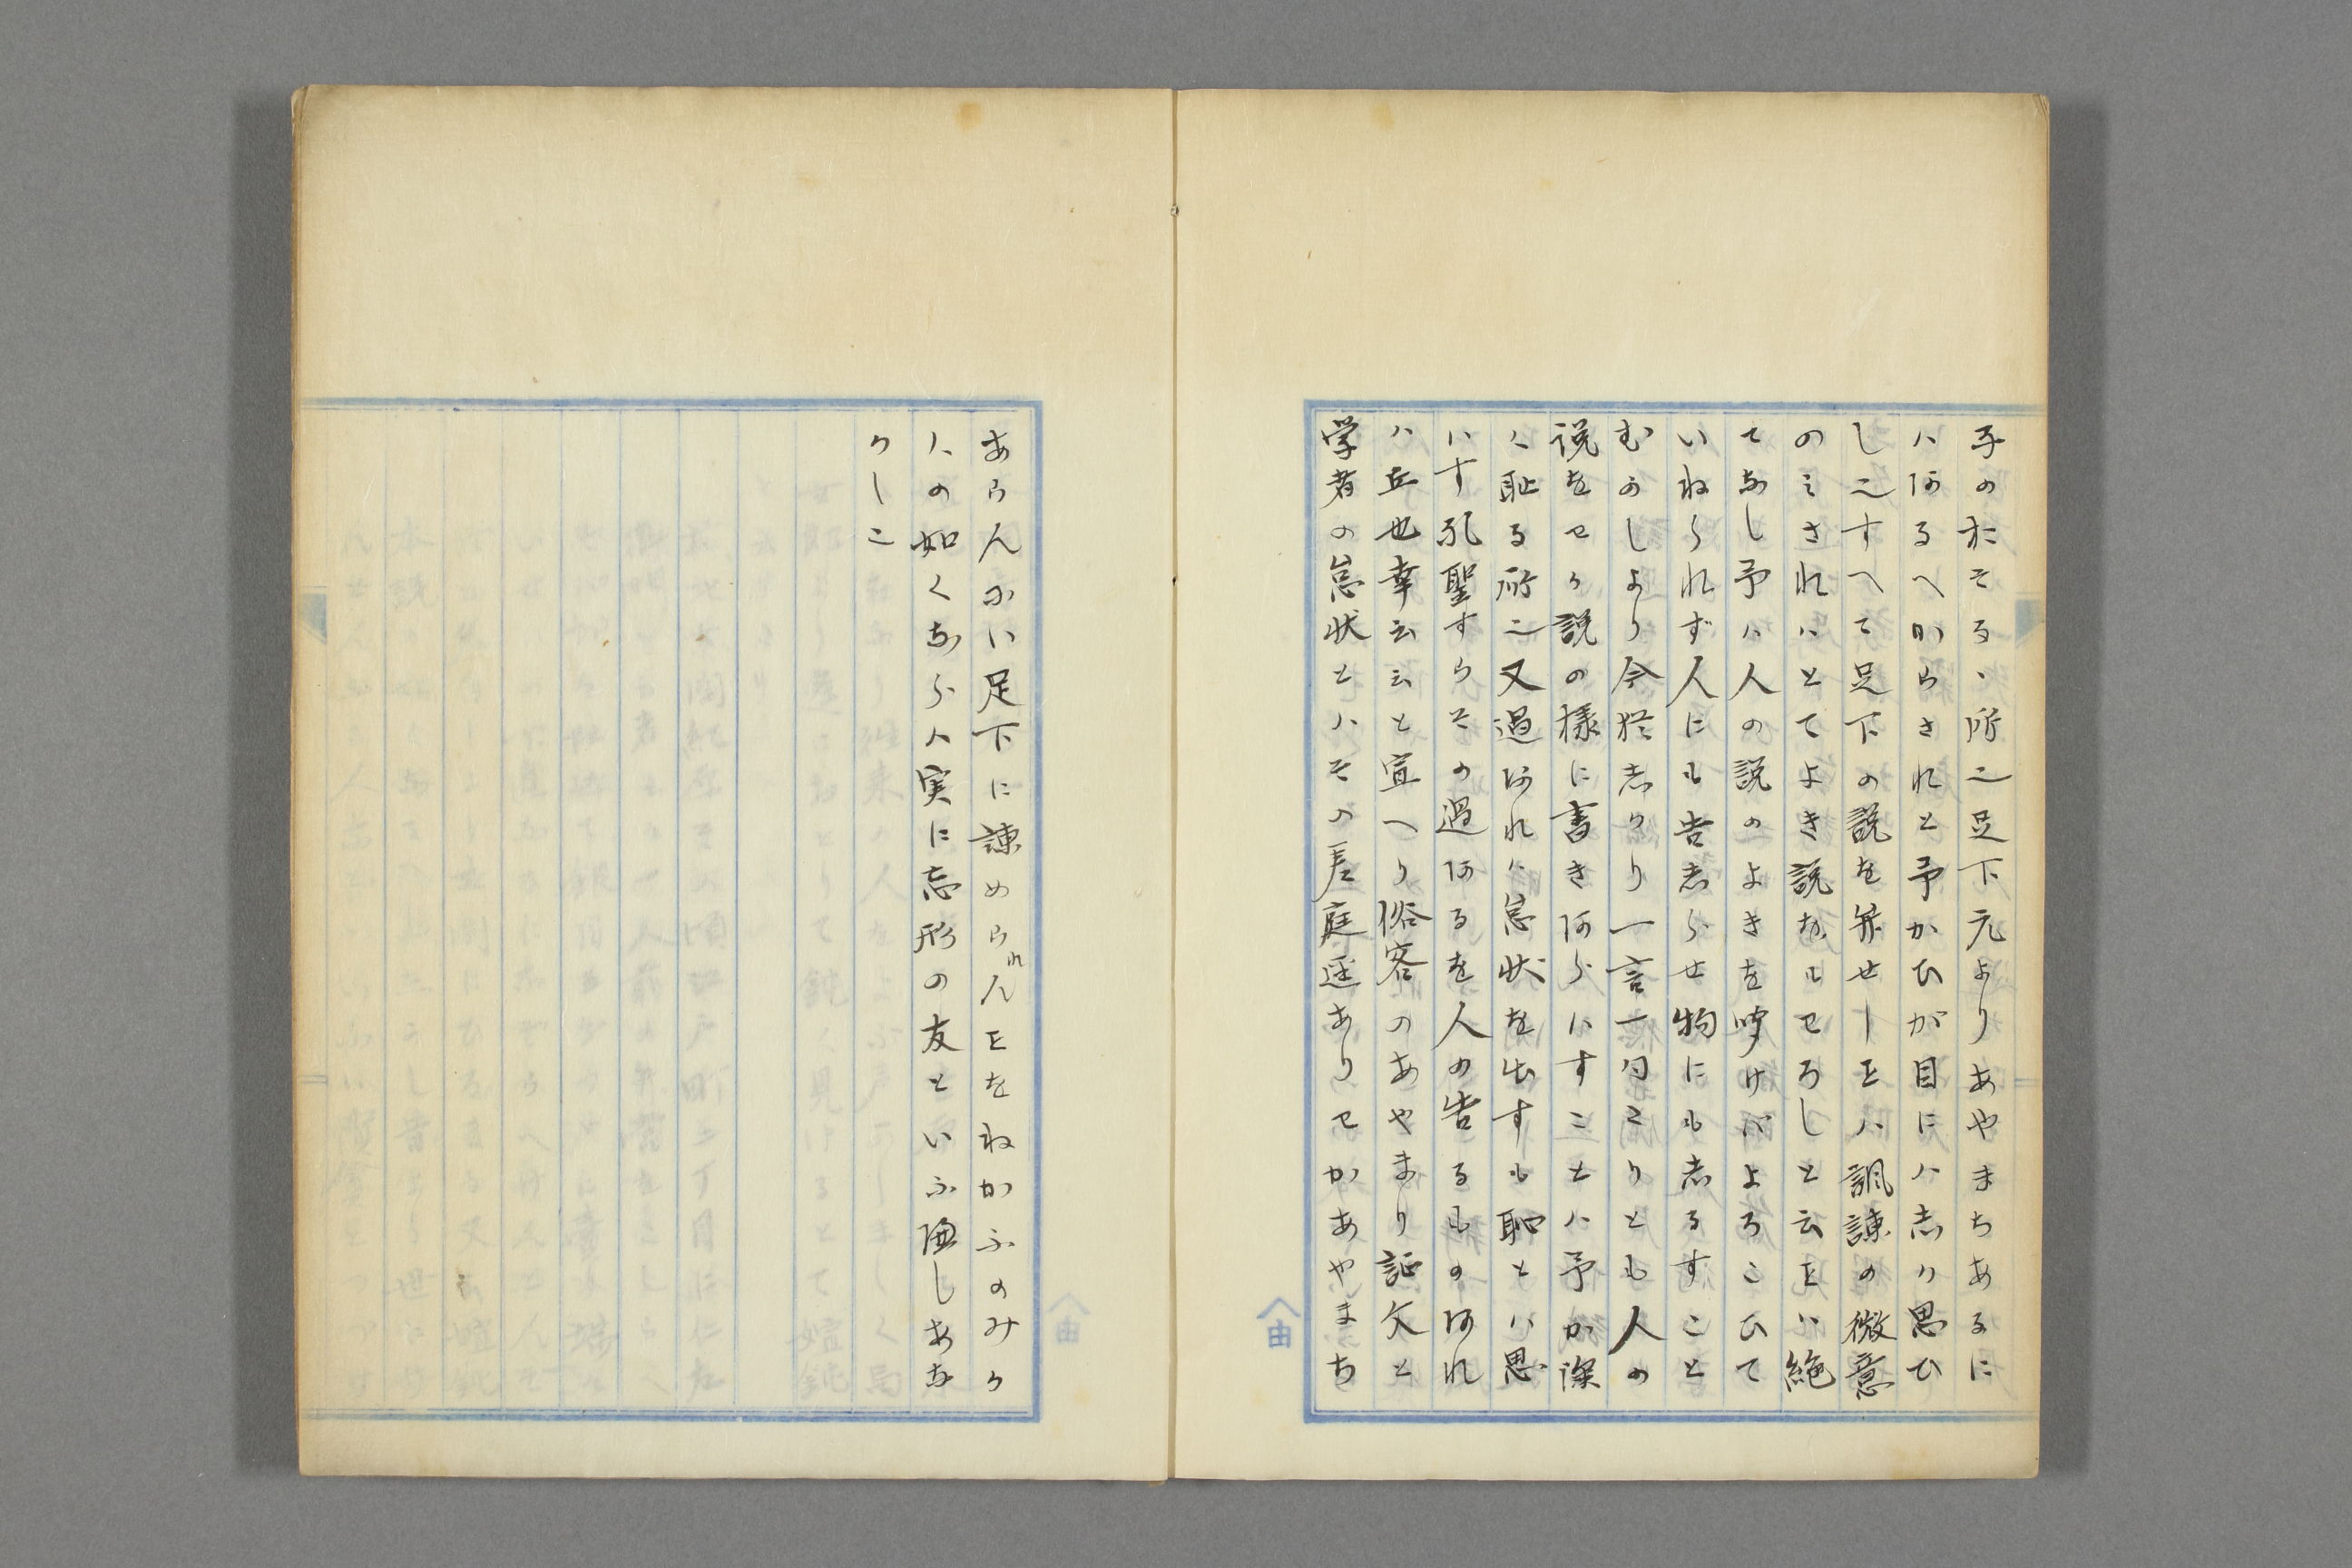 予のおそるゝ所也足下元よりあやまちあるに
ハあるへからされと予かひが目にハ志か思ひ
し也すへて足下の説を弁せしヿハ諷諫の微意
のミされハとてよき説をもわろしと云ヿハ絶
てなし予ハ人の説のよきを聞けバよろこひて
いねられず人にも告志らせ物にも志るすこと
むかしより今然志かり一言一句たりとも人の
説をわか説の様に書きあらハすことハ予か深
く恥る所也又過あれハ怠状を出すも恥とハ思
ハす孔聖すらその過あるを人の告るものあれ
ハ丘也幸云云と宣へり俗客のあやまり証文と
学者の怠状とハその差庭逕ありわかあやまち
あらんにハ足下に諫められんヿをねかふのみか
くの如くならハ実に忘形の友といふ遍しあな
かしこ
由
由